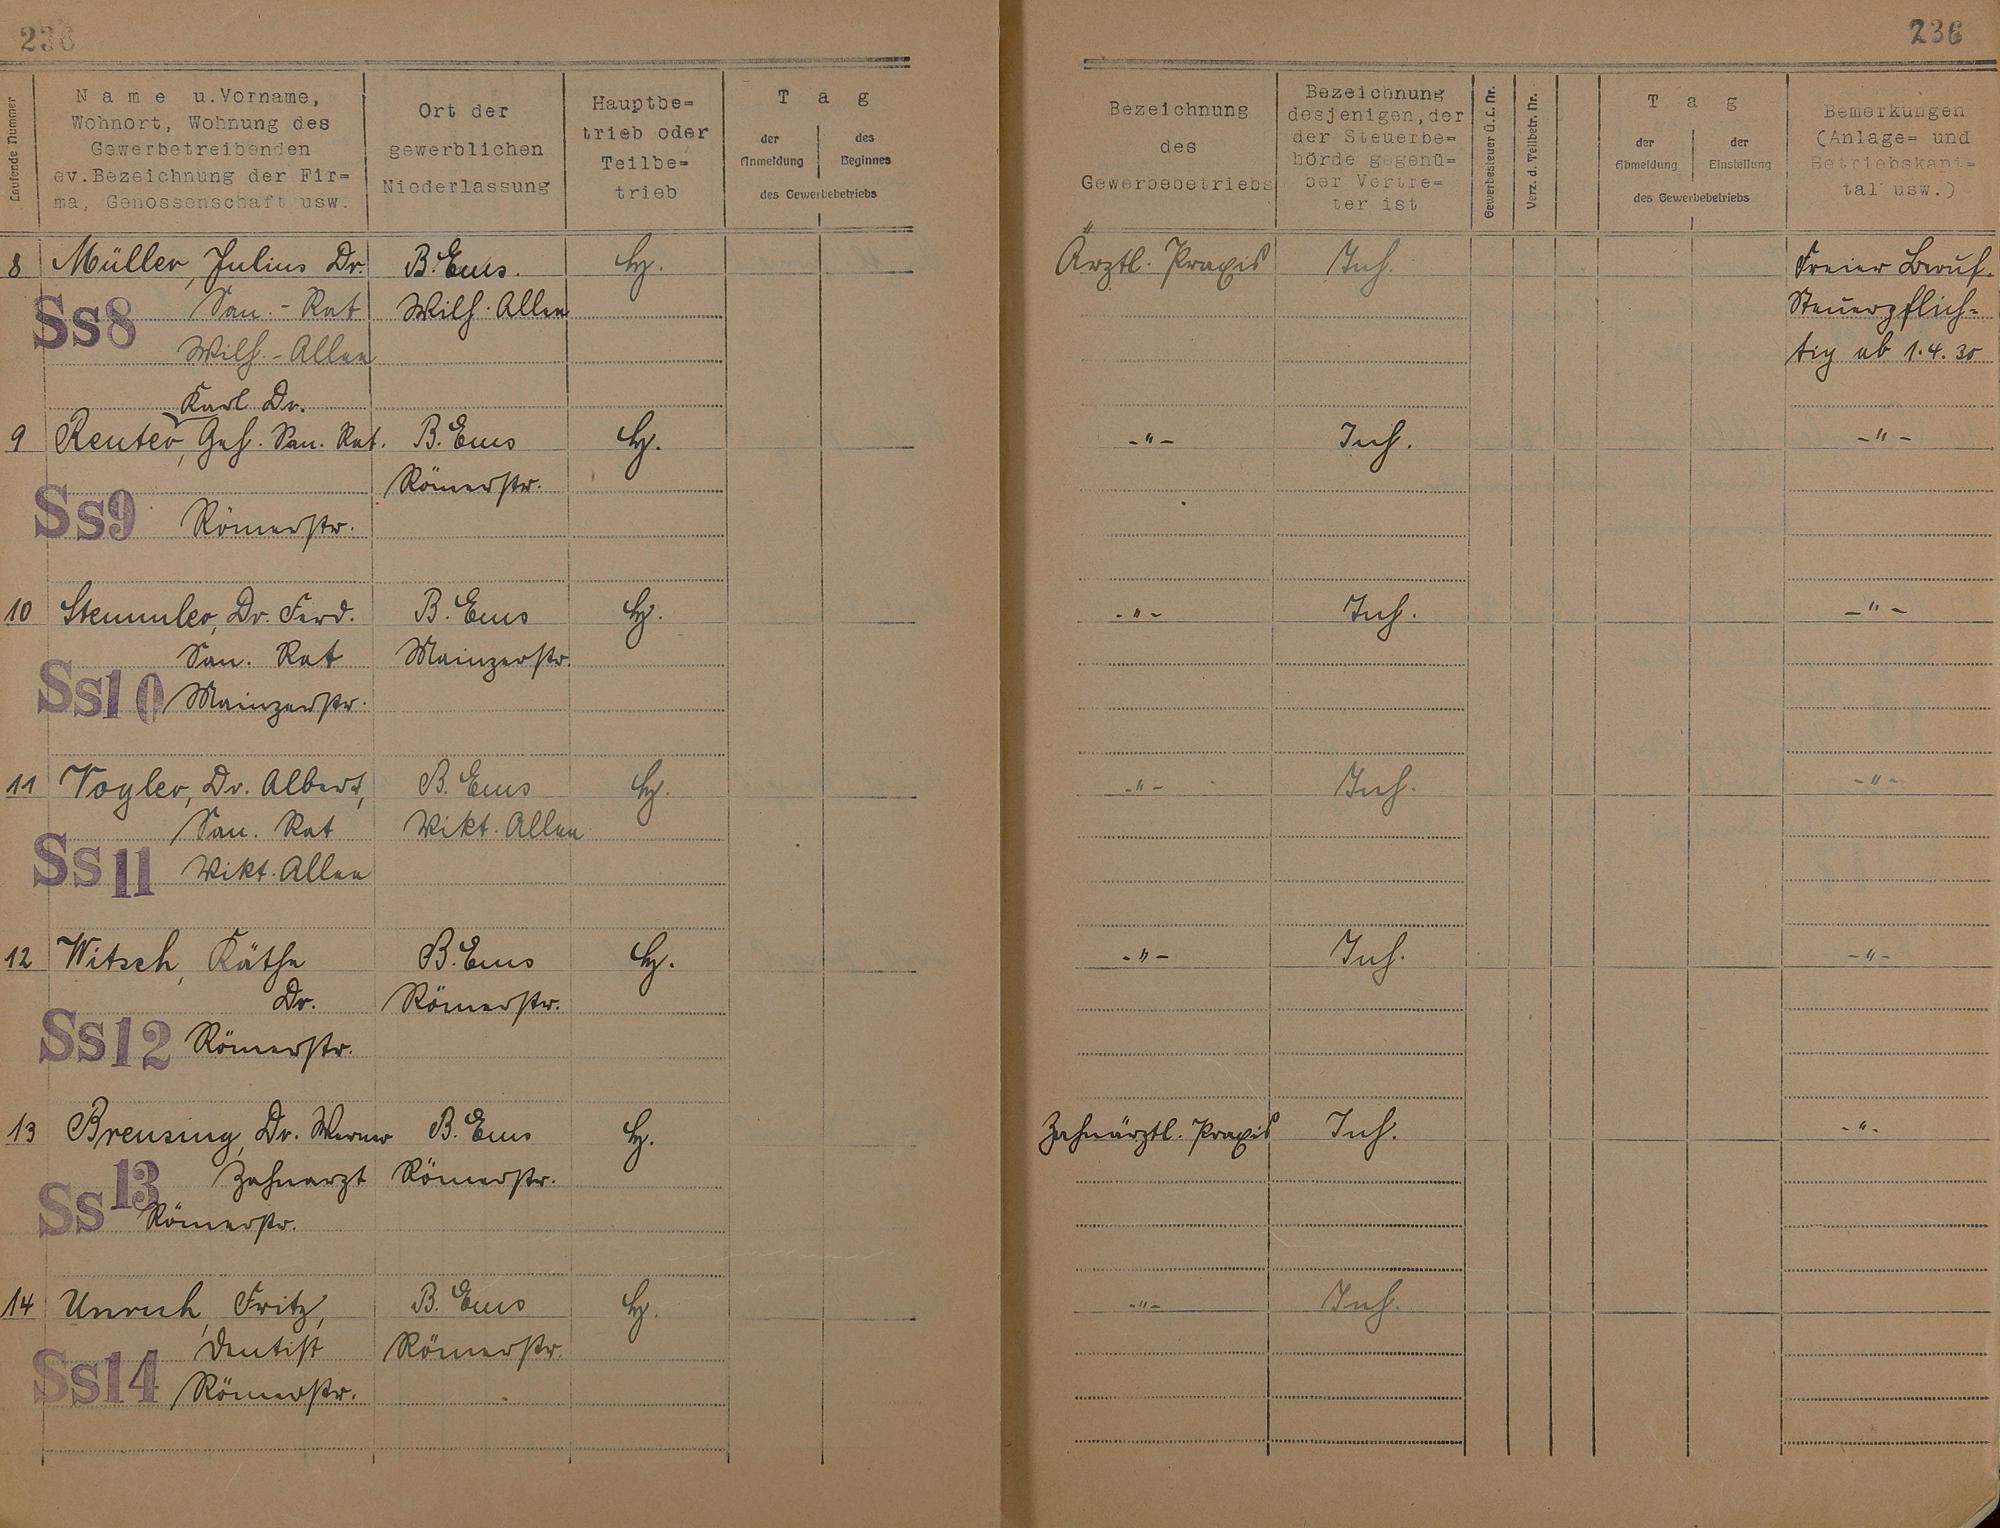 236
Laufende Nummer
Name u. Vorname,
Wohnort, Wohnung des
Gewerbetreibenden
ev. Bezeichnung der Fir=
ma, Genossenschaft usw.
Ort der
gewerblichen
Niederlassung
Hauptbe=
trieb oder
Teilbe=
trieb
Tag
der
Anmeldung
des
Beginnes
des Gewerbebetriebs
8 Müller, Julius Dr. B. Ems. H.
San.-Rat Wilh. Allee
Ss8
Wilh.-Allee
Karl Dr.
9 Reuter, Geh. San. Rat. B. Ems H.
Römerstr.
Ss9 Römerstr.
10 Stemmler, Dr. Ferd. B. Ems H.
San. Rat Mainzerstr.
Ss10 Mainzerstr.
11 Vogler, Dr. Albert, B. Ems H.
San. Rat Vikt. Allee
Ss11 Vikt. Allee
12 Witsch, Käthe B. Ems H.
Dr. Römerstr.
Ss12 Römerstr.
13 Breusing, Dr. Werner B. Ems H.
Zahnarzt Römerstr.
Ss13 Römerstr.
14 Unruh, Fritz, B. Ems H.
Dentist Römerstr.
Ss14 Römerstr.
236
Bezeichnung
des
Gewerbebetriebs
Bezeichnung
desjenigen, der
der Steuerbe=
hörde gegenü=
ber Vertre=
ter ist
Gewerbesteuer Ü.L. Nr.
Verz. d. Teilbetr. Nr.
Tag
der
Abmeldung
der
Einstellung
des Gewerbebetriebs
Bemerkungen
(Anlage= und
Betriebskapi=
tal usw.)
Ärztl. Praxis Inh. Freier Beruf.
Steuerpflich=
tig ab 1.4.30
-"- Inh. -"-
-"- Inh. -"-
-"- Inh. -"-
-"- Inh. -"-
Zahnärztl. Praxis Inh. -"-
-"- Inh.